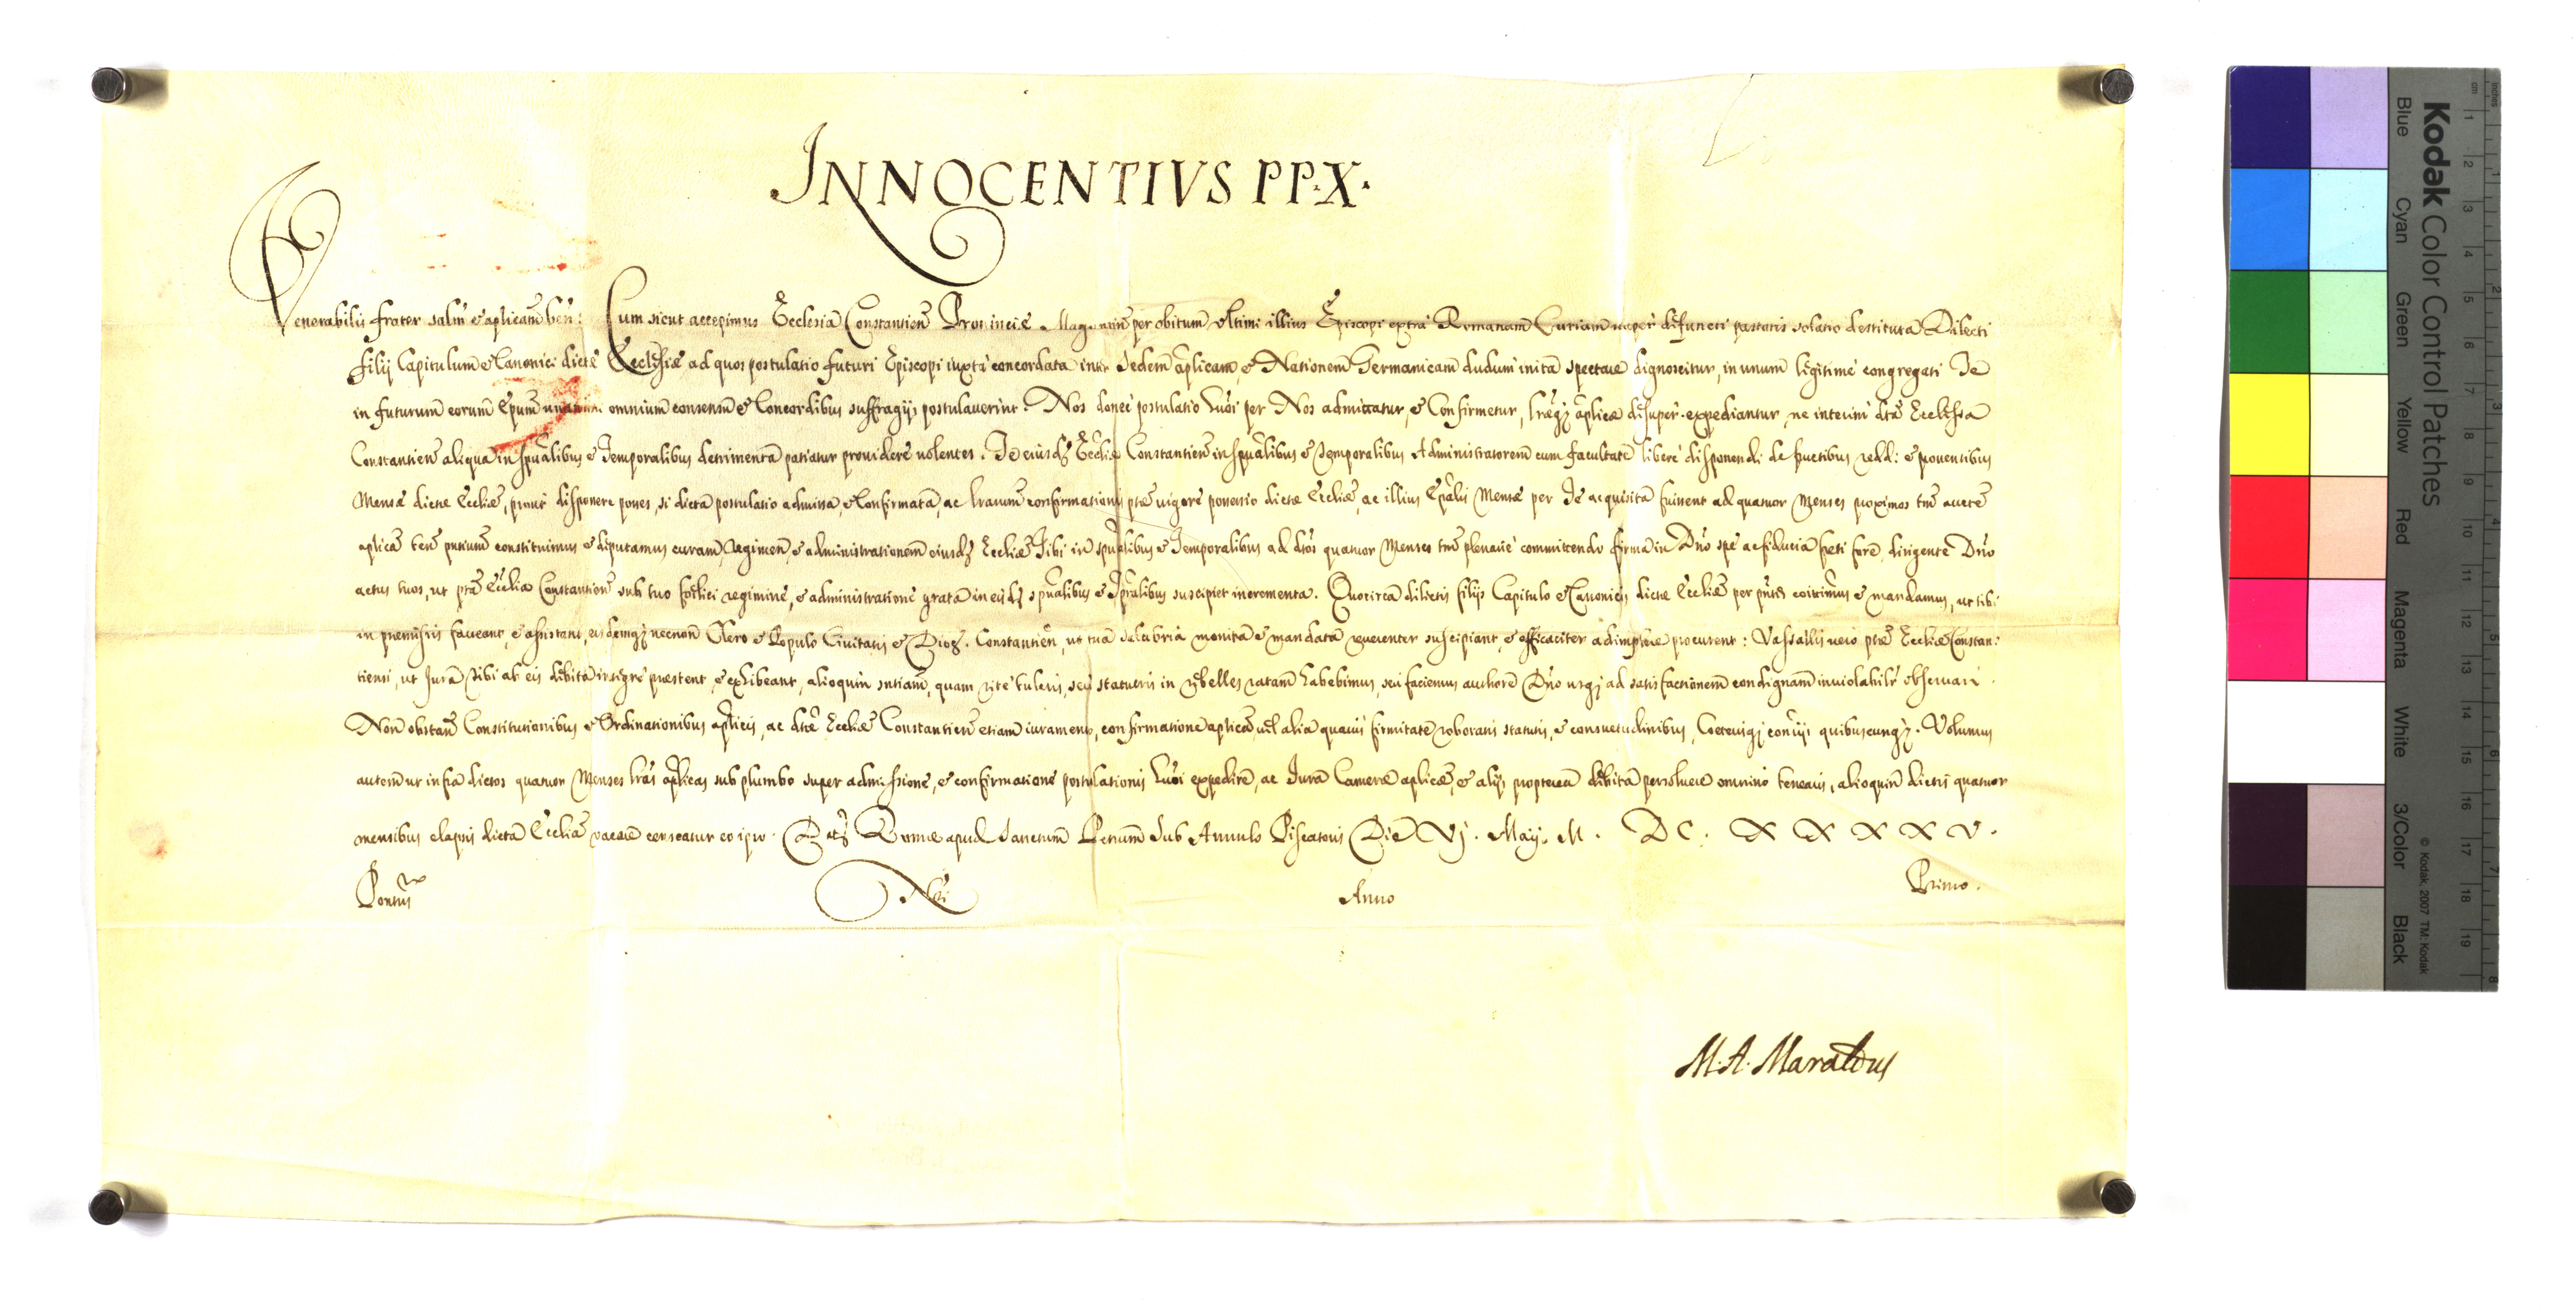 INNOCENTIVS PP. X.
Venerabilis frater salm̃ et aplicam̃ ben̄. Cum sicut accepimus Ecclesia Constantien̄ Provinciæ Maguntin̄ per obitum ultimi illius Episcopi extra Romanam Curiam nuper defuncti pastoris solatio destituta Dilecti
filij Capitulum et Canonici dictæ Ecclesiæ ad quos postulatio futuri Episcopi iuxta concordata inter Sedem aplicam, et Nationem Germanicam dudum inita spectare dignoscitur, in unum legitime congregati Te
in futurum eorum Epum̃ omnium consensu et Concordibus suffragijs postulaverint. Nos donec postulatio huõi per Nos admittatur, et Confirmetur, lræq; aplicæ desuper expediantur, ne interim dtã Ecclesia
Constantien̄ aliqua in spũalibus et Temporalibus detrimenta patiatur providere volentes. Te eiusd; Eccliæ Constantien̄ in spũalibus et Temporalibus Administratorem cum facultate libere disponendi de fructibus redd: et proventibus
Mensæ dictæ Eccliæ, prout disponere posses, si dicta postulatio admissa, et Confirmata, ac lrarum confirmationis ptæ vigore possessio dictæ Eccliæ, ac illius Epãlis Mensæ per Te acquisita fuissent ad quatuor Menses proximos tm̃ aucte
aplica ten̄ pntium constituimus et deputamus curam, regimen, et administrationem eiusd; Eccliæ Tibi in spũalibus et Temporalibus ad dtos quatuor Menses tm̃ plenarie committendo firma in Dño spe ac fiducia freti fore, dirigente Dño
actus tuos, ut ptã Ecclia Constantien̄ sub tuo fœlici regimine, et administratione grata in eisd; spũalibus et Tp̃ralibus suscipiet incrementa. Quocirca dilectis filijs Capitulo et Canonicis dictæ Eccliæ per pñtes coñittimus et mandamus, ut tibi
in præmissis faveant, et assistant, eisdemq; necnon Clero et Populo Civitatis et Dioc. Constantien̄, ut tua salubria monita et mandata reverenter suscipiant, et efficaciter adimplere procurent: Vassallis vero ptæ Eccliæ Constan:
tiensi, ut Jura Tibi ab eis debita integre præstent, et exhibeant, alioquin sntiam, quam rite tuleris, seu statueris in rebelles ratam habebimus, seu faciemus auctore Dño usq; ad satisfactionem condignam inviolabilr̃ observari.
Non obstan̄ Constitutionibus et Ordinationibus aplicis, ac dtæ Eccliæ Constantien̄ etiam iuramento, confirmatione aplica, vel alia quavis firmitate roboratis statutis, et consuetudinibus, Coeterisq; conr̃ijs quibuscunq;. Volumus
autem ut infra dictos quatuor Menses lras aplicas sub plumbo super admissione, et confirmatione postulationis huõi expedire, ac Jura Cameræ aplicæ, et alijs propterea debita persolvere omnino tenearis, alioquin dictis quatuor
mensibus elapsis dicta Ecclia vacare censeatur eo ipso. Dat; Romæ apud Sanctum Petrum Sub Annulo Piscatoris Die Vj. Maij. M. DC. XXXXV.
Pontus Nri Anno Primo.
M. A. Maraldus
Kodak Color Control Patches
Blue Cyan Green Yellow Red Magenta White 3/Color Black
© Kodak, 2007 TM: Kodak
cm 1 2 3 4 5 6 7 8 9 10 11 12 13 14 15 16 17 18 19
inches 1 2 3 4 5 6 7 8